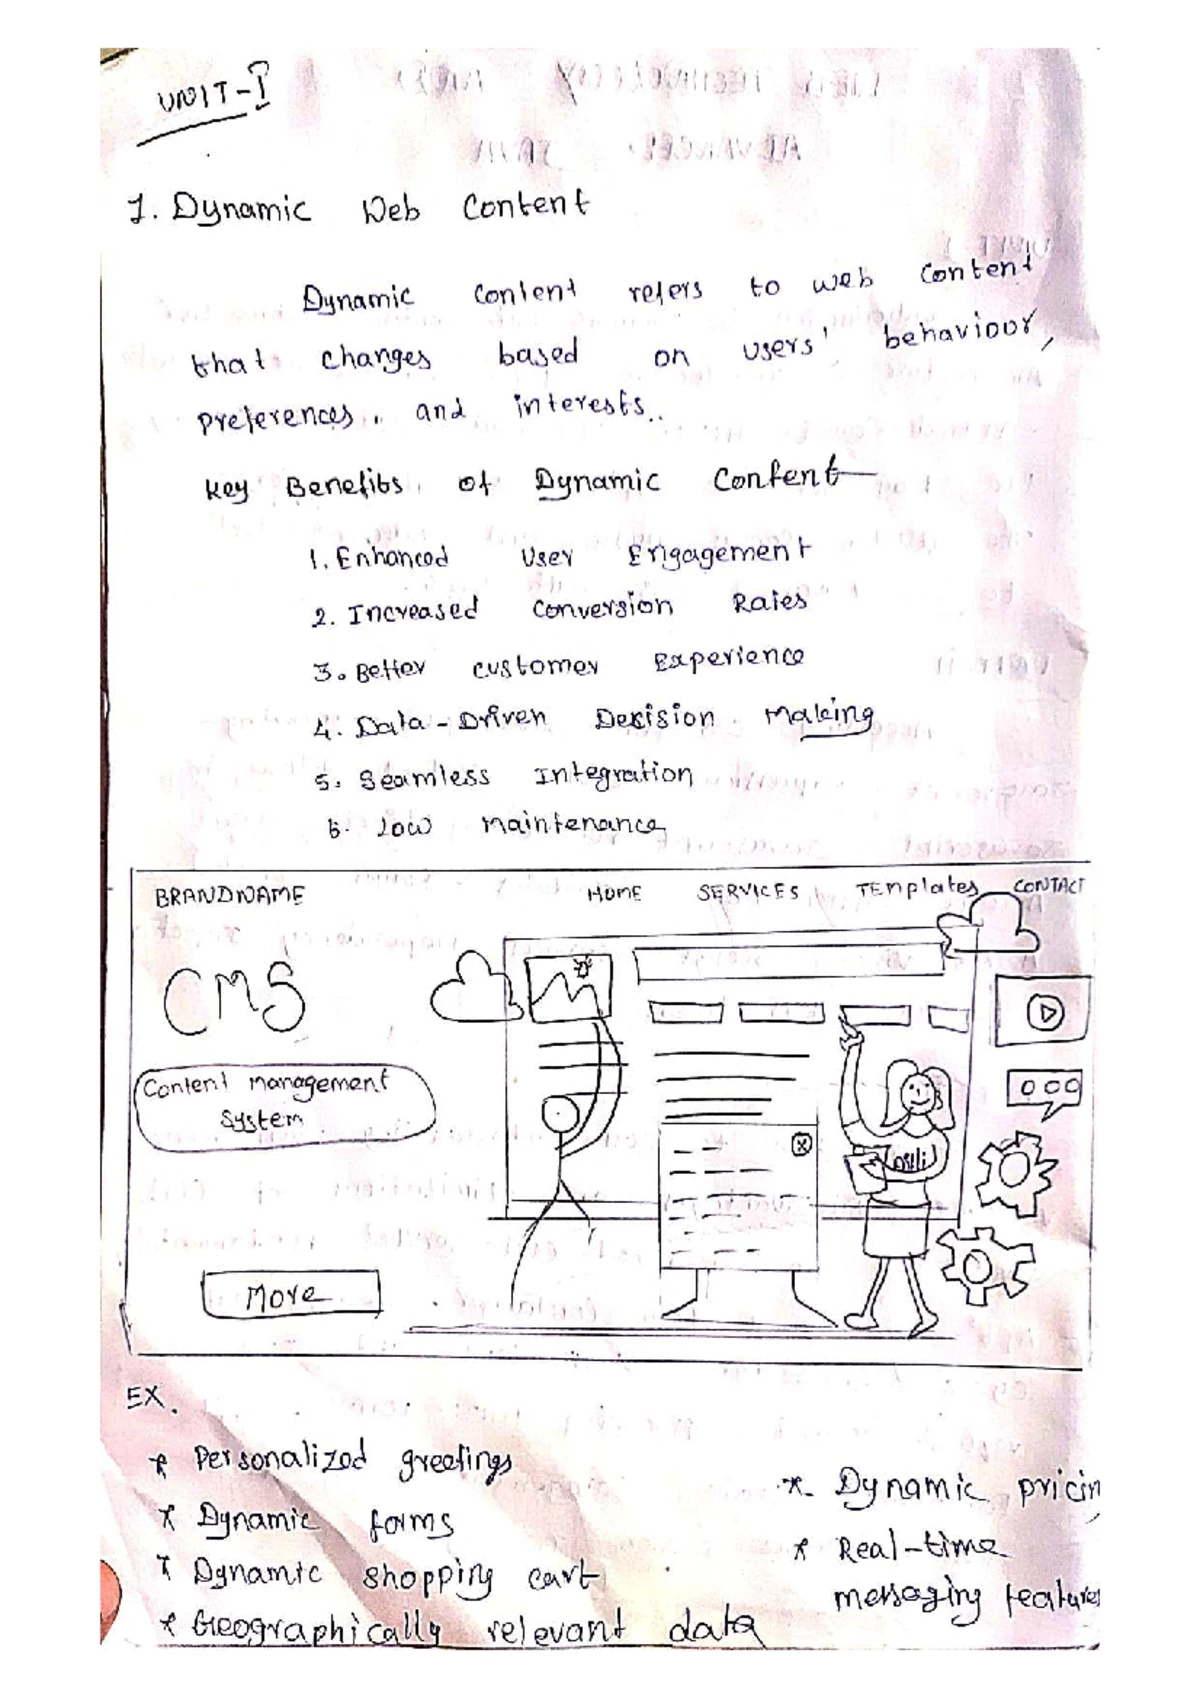 UNIT-I
1. Dynamic Web Content
Dynamic Content refers to web content
that changes based on users' behaviour,
preferences, and interests.
Key Benefits of Dynamic Content
1. Enhanced User Engagement
2. Increased Conversion Rates
3. Better customer Experience
4. Data-Driven Decision Making
5. Seamless Integration
6. Low maintenance
BRANDNAME HOME SERVICES TEmplates CONTACT
CMS
Content management
System
More
EX.
* Personalized greetings
* Dynamic forms
* Dynamic shopping cart
* Geographically relevant data
* Dynamic pricin
* Real-time
messaging features